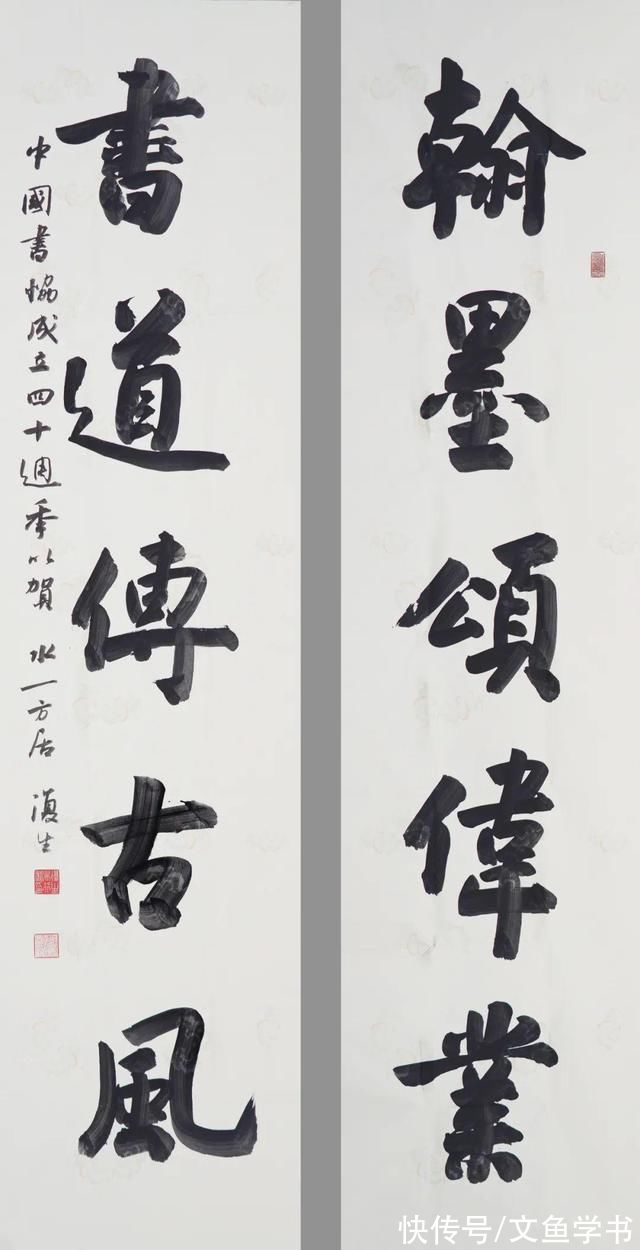 翰墨頌偉業
書道傳古風
中國書協成立四十週年以賀 水一方居 復生
快传号/文鱼学书